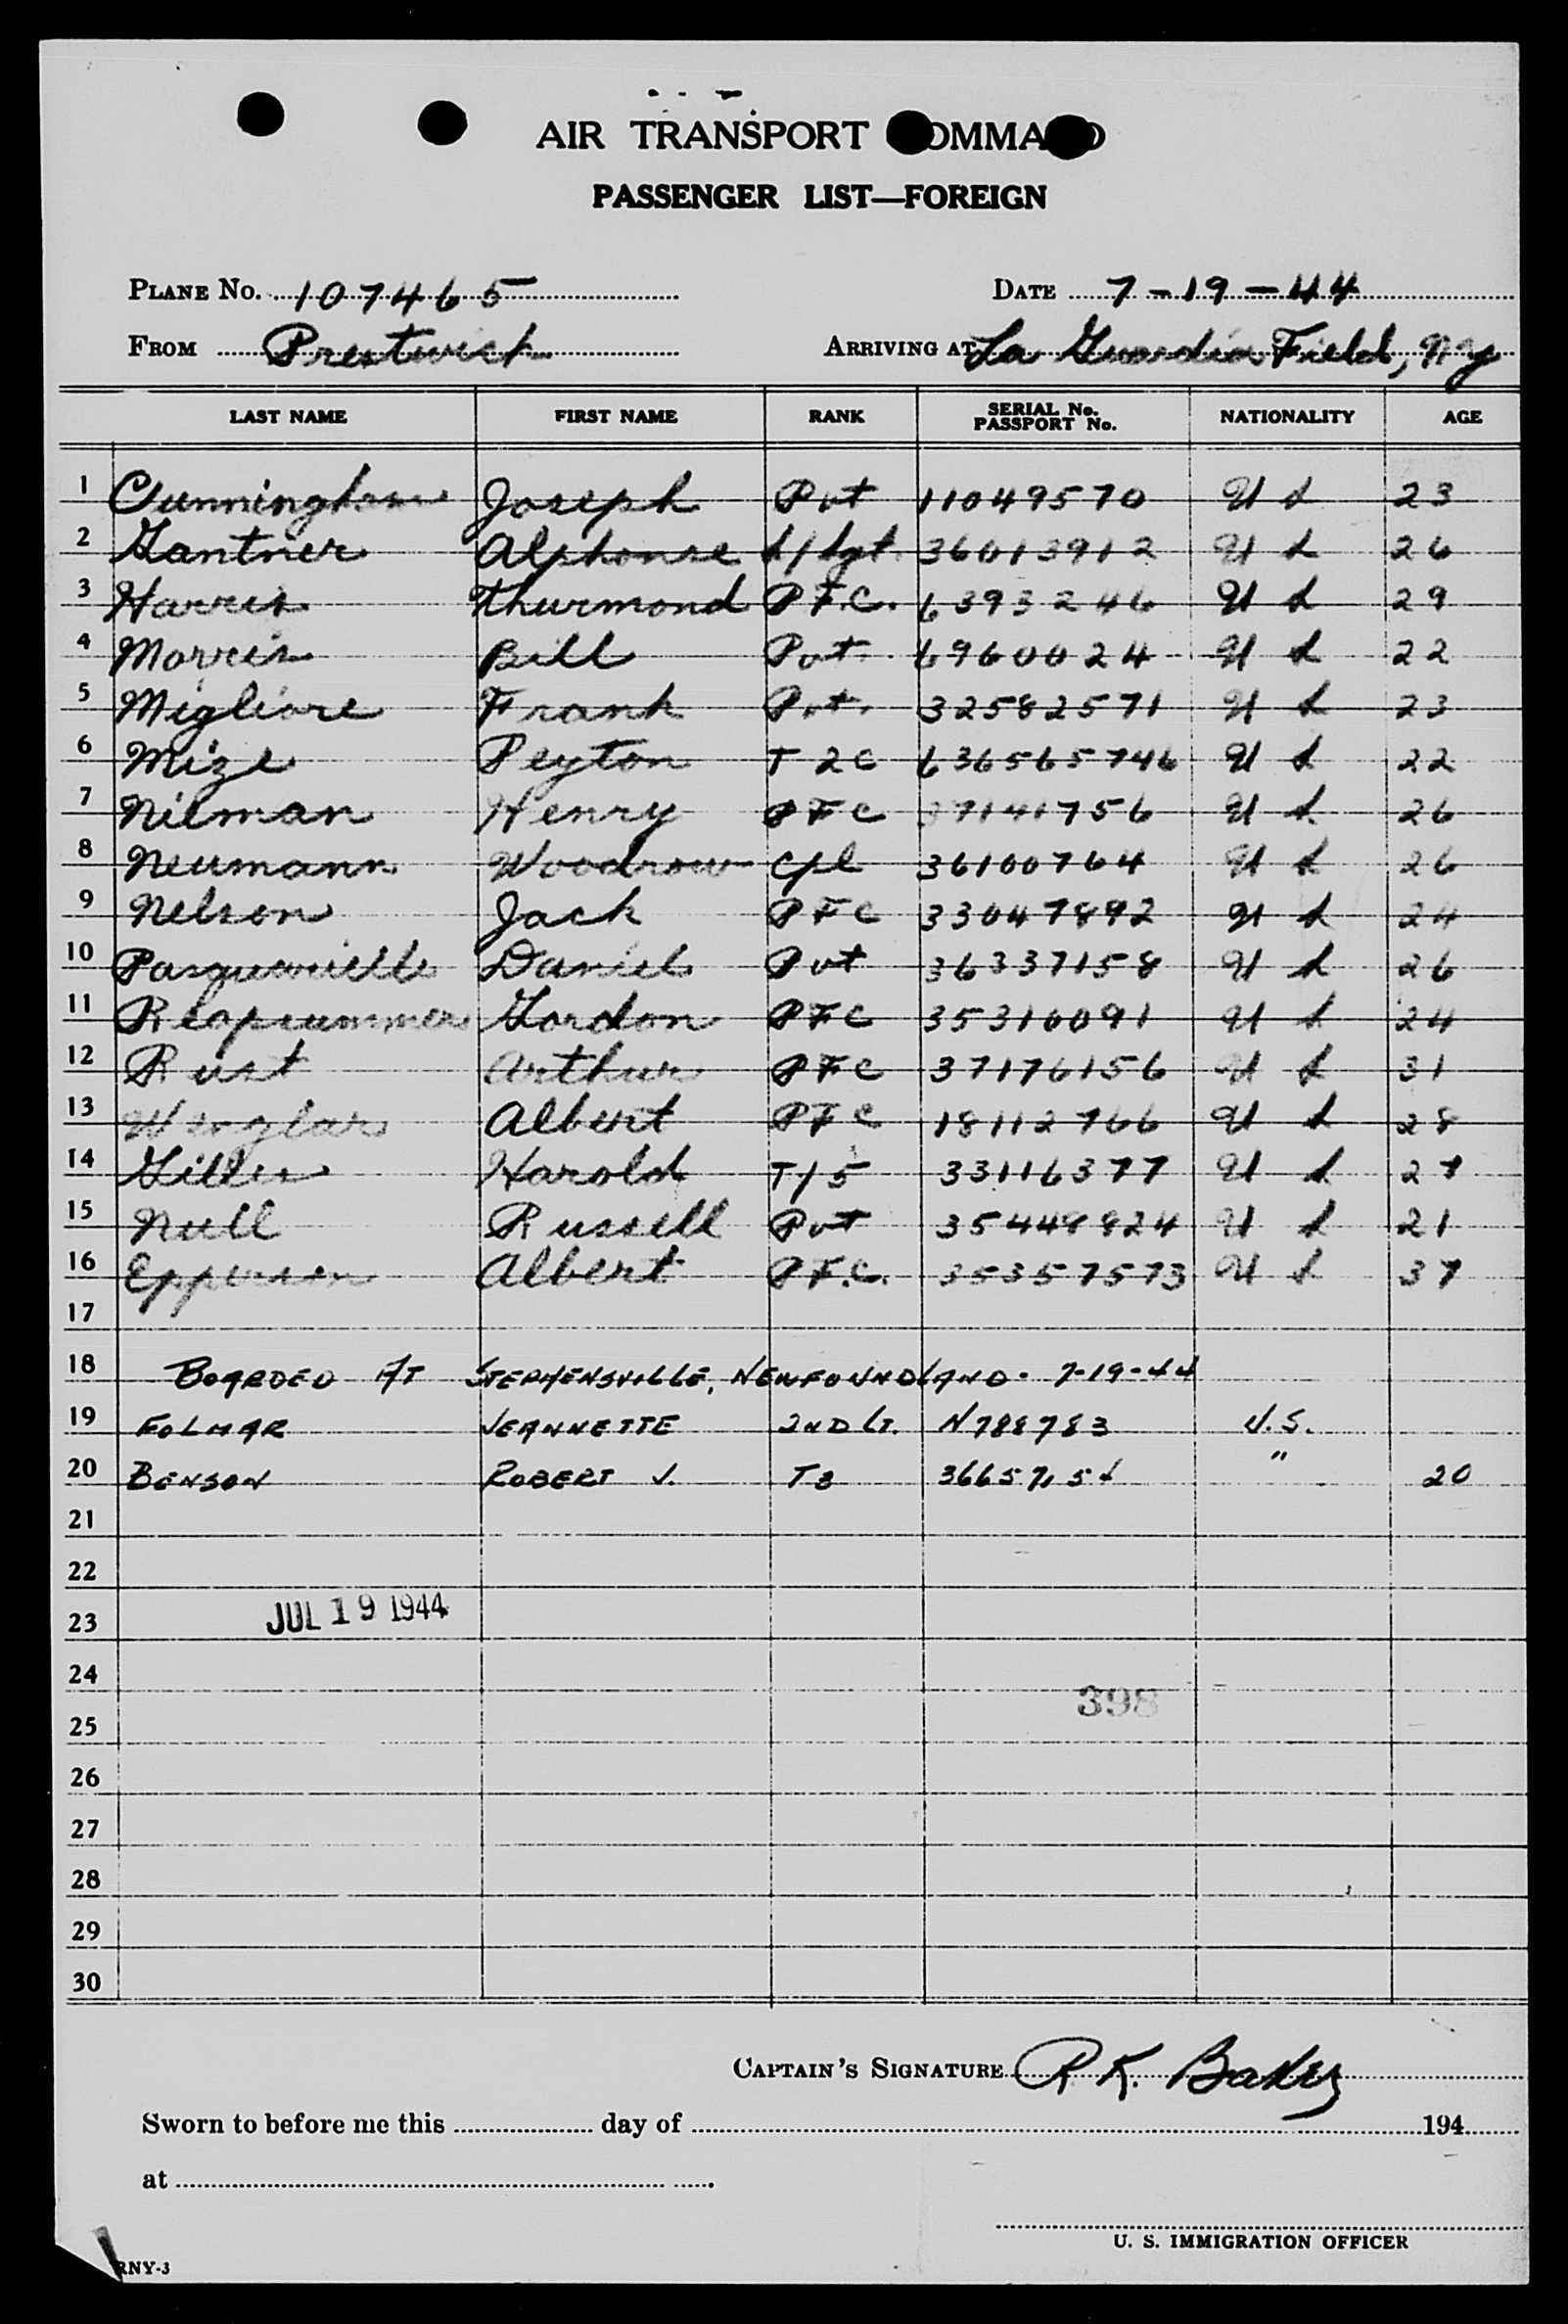 AIR TRANSPORT COMMAND
PASSENGER LIST—FOREIGN
PLANE No. 107465 DATE 7-19-44
FROM Prestwick ARRIVING AT La Guardia Field, NY
LAST NAME FIRST NAME RANK SERIAL No. PASSPORT No. NATIONALITY AGE
1 Cunningham Joseph Pvt 11049570 U S 23
2 Gantner Alphonse S/Sgt. 36013912 U S 26
3 Harris Thurmond P.F.C. 6393246 U S 29
4 Morris Bill Pvt. 6960024 U S 22
5 Migliore Frank Pvt. 32582571 U S 23
6 Mize Peyton T 2C 636565746 U S 22
7 Nieman Henry PFC 37141756 U S 26
8 Neumann Woodrow Cpl 36100764 U S 26
9 Nelson Jack PFC 33047892 U S 24
10 Daniel Pvt 36337158 U S 26
11 Gordon PFC 35310091 U S 24
12 Rust Arthur PFC 37176156 U S 31
13 Wenglar Albert PFC 18112766 U S 28
14 Harold T/5 33116377 U S 27
15 Null Russell Pvt 35448824 U S 21
16 Epperson Albert P.F.C. 35357573 U S 37
17
18 BOARDED AT STEPHENSVILLE, NEWFOUNDLAND. 7-19-44
19 FOLMAR JEANNETTE 2ND LT. N788783 U.S.
20 BENSON ROBERT J. T3 " 20
21
22
23 JUL 19 1944
24
398
25
26
27
28
29
30
CAPTAIN'S SIGNATURE R K. Baker
Sworn to before me this day of 194
at
U. S. IMMIGRATION OFFICER
RNY-3